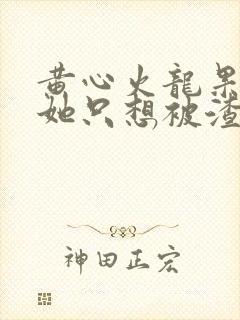 黄心火龍果
她只想被渣
神田正宏